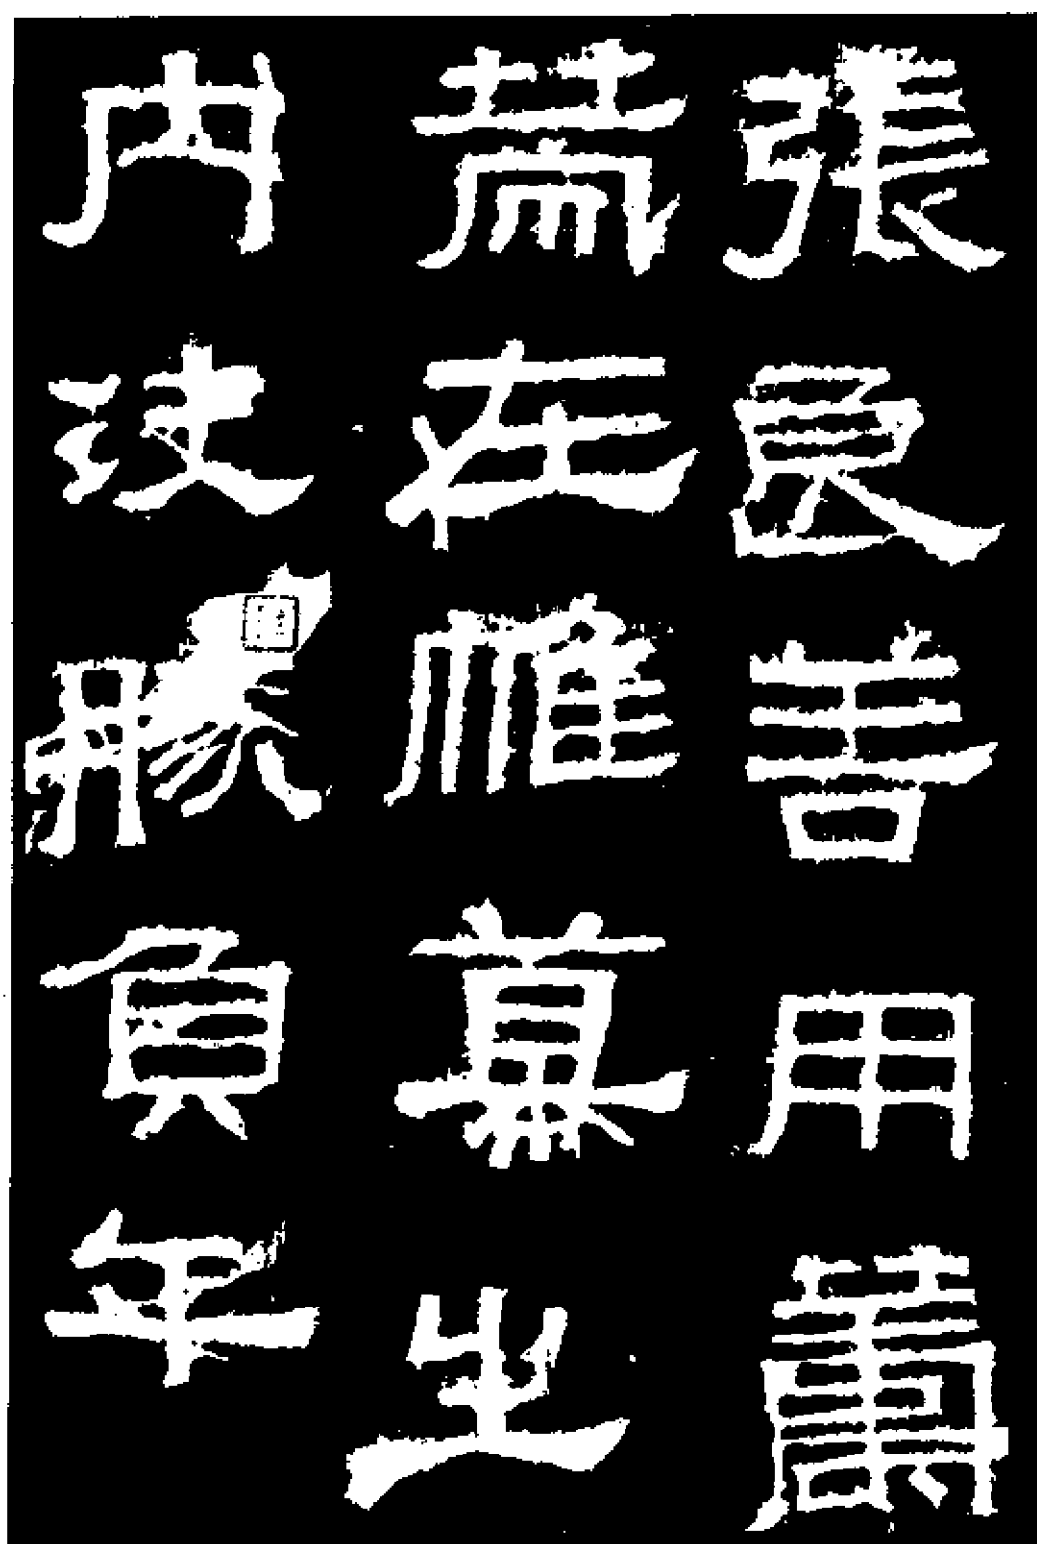 張良善用籌
策在帷幕之
內決勝負年